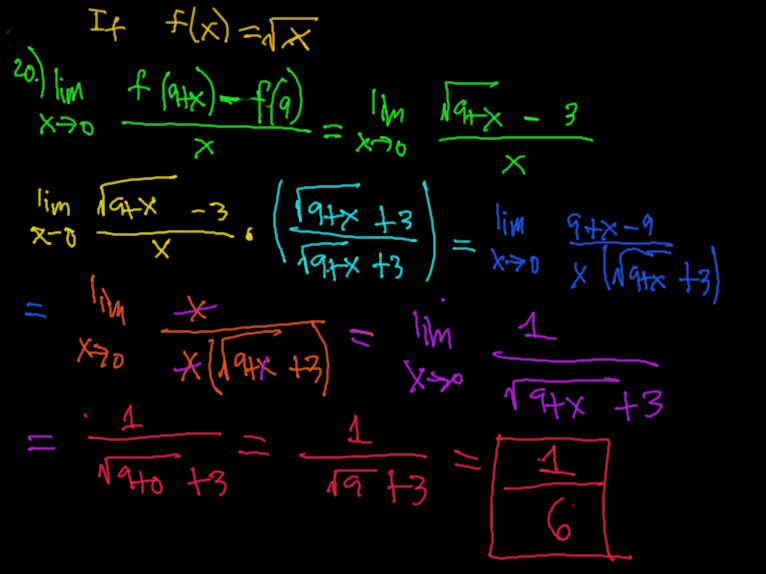 If f(x) = √x
20.) lim x→0 (f(9+x) - f(9))/x = lim x→0 (√(9+x) - 3)/x
lim x→0 (√(9+x) - 3)/x · ((√(9+x) + 3)/(√(9+x) + 3)) = lim x→0 (9+x-9)/(x(√(9+x) + 3))
= lim x→0 x/(x(√(9+x) + 3)) = lim x→0 1/(√(9+x) + 3)
= 1/(√(9+0) + 3) = 1/(√9 + 3) = 1/6